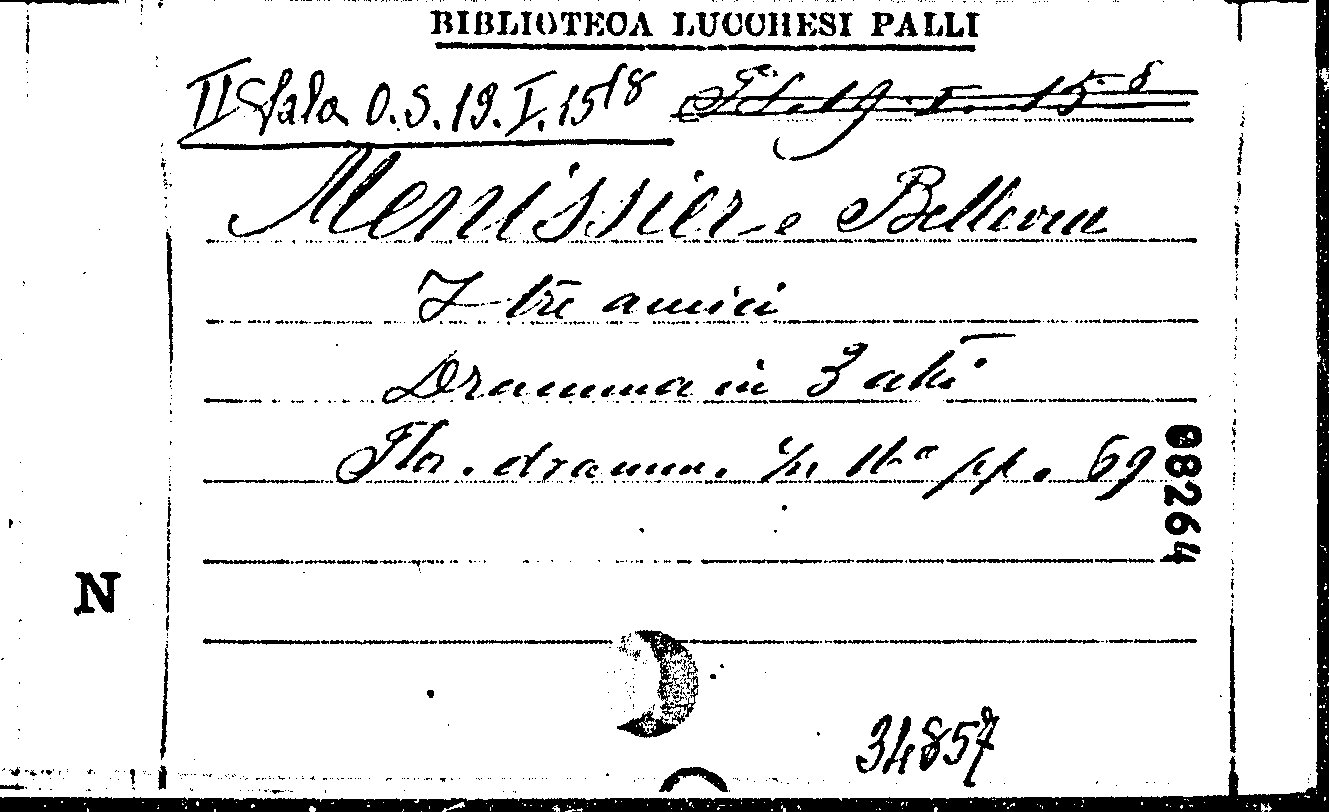 BIBLIOTECA LUCCHESI PALLI
II Sala O.S.19.I.15 18
Menissier e Bellevue
I tre amici
Dramma in 3 atti
Flor. dramm. In 16° pp. 69
08264
N
34857